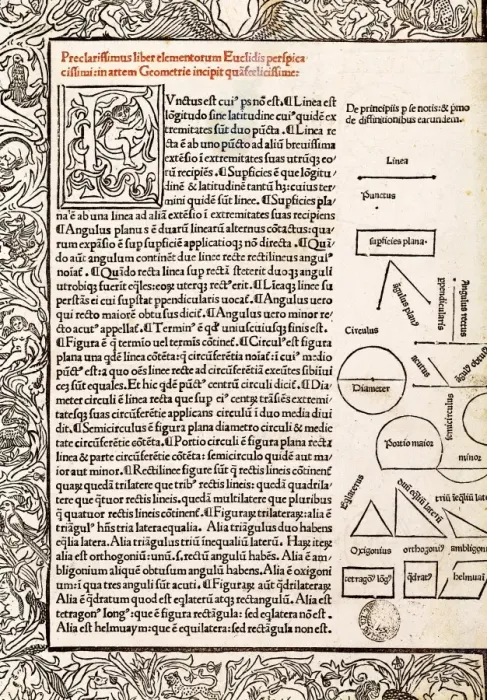 Preclarissimus liber elementorum Euclidis perspica
cissimi: in artem Geometrie incipit quãfoelicissime:
Vnctus est cuiꝰ ps nõ est. ¶ Linea est
lõgitudo sine latitudine cuiꝰ quidẽ ex
tremitates sũt duo pũcta. ¶ Linea re
cta ẽ ab uno pũcto ad aliũ breuissima
extẽsio ĩ extremitates suas utrũqꝫ eoꝝ
tũ recipiẽs. ¶ Supficies ẽ que lõgitu/
dinẽ & latitudinẽ tantũ hꝫ: cuius ter
mini quidẽ sũt linee. ¶ Supficies pla/
na ẽ ab una linea ad aliã extẽsio ĩ extremitates suas recipiens
¶ Angulus planus ẽ duarũ linearũ alternus cõtactus: qua/
rum expãsio ẽ sup supficiẽ applicatioqꝫ nõ directa. ¶ Quã/
do aũt angulum continẽt due linee recte rectilineus angulꝰ
noiaẗ. ¶ Quãdo recta linea sup rectã steterit duoqꝫ anguli
utrobiqꝫ fuerit eq̃les: eoꝝ uterqꝫ rectꝰ erit. ¶ Lieaqꝫ linee su
perstãs ei cui supstat ppendicularis uocaẗ. ¶ Angulus uero
qui recto maiorẽ obtusus diciẗ. ¶ Angulus uero minor re/
cto acutꝰ appellaẗ. ¶ Terminꝰ ẽ qd̃ uniuscuiusqꝫ finis est.
¶ Figura ẽ q̃ termĩo uel termis cõtineẗ. ¶ Circulꝰ est figura
plana una qdẽ linea cõtẽta: q̃ circũferẽtia noiaẗ: ĩ cuiꝰ medio
pũctꝰ est: a quo oẽs linee recte ad circũferẽtiã exeũtes sibiĩui
cẽ sũt equales. Et hic qdẽ pũctꝰ centrũ circuli diciẗ. ¶ Dia/
meter circuli ẽ linea recta que sup eiꝰ centꝝ trãsiẽs extremi/
tatesqꝫ suas circũferẽtie applicans circulũ ĩ duo media diui
dit. ¶ Semicirculus ẽ figura plana diametro circuli & medie
tate circũferẽtie cõtẽta. ¶ Portio circuli ẽ figura plana recta
linea & parte circũferẽtie cõtẽta: semicirculo quidẽ aut ma/
ior aut minor. ¶ Rectilinee figure sũt q̃ rectis lineis cõtinenẗ
quaꝝ quedã trilatere que tribꝰ rectis lineis: quedã quadrila/
tere que q̃tuor rectis lineis. quedã multilatere que pluribus
q̃ quatuor rectis lineis cõtinenẗ. ¶ Figuraꝝ trilateraꝝ: alia ẽ
triãgulꝰ hñs tria latera equalia. Alia triãgulus duo habens
eq̃lia latera. Alia triãgulus triũ inequaliũ laterũ. Haꝝ iteꝝ
alia est orthogoniũ: unũ. s. rectũ angulũ habẽs. Alia ẽ am/
bligonium aliquẽ obtusum angulũ habens. Alia ẽ oxigoni
um: ĩ qua tres anguli sũt acuti. ¶ Figuraꝝ aũt q̃drilateraꝝ
Alia ẽ q̃dratum quod est eq̃laterũ atqꝫ rectangulũ. Alia est
tetragonꝰ longꝰ: que ẽ figura rectãgula: sed eq̃latera nõ est.
Alia est helmuaym: que ẽ equilatera: sed rectãgula non est.
De principiis p se notis: & pmo
de diffinitionibus earundem.
Linea
Punctus
supficies plana.
ãgulus planꝰ
ppendicularis
Angulus rectus
Circulus
acutus
Diameter
semicirculus
Portio maior
minor
Eq̃laterus
duũ eq̃liũ laterũ
triũ ĩeq̃liũ lať
Oxigonius
orthogoniꝰ
ambligon
tetragonꝰ lõgꝰ
q̃dratꝰ
helmuaĩ